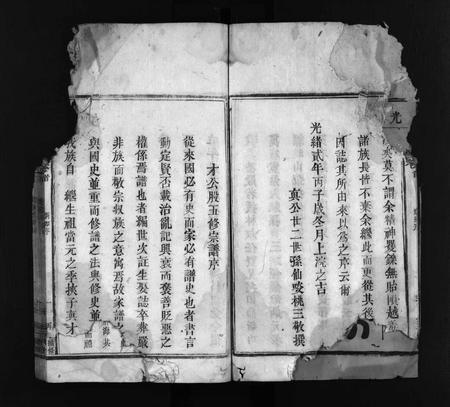 光
來莫不謂余精神矍鑠無貽隕越
諸族長皆不棄余繼此而更從其後
因誌其所由來以為之序云爾
光緒貳年丙子歲冬月上浣之古
真公廿二世孫仙咬桃三敬撰
才公殷五修宗譜序
從來國必有史而家必有譜史也者書言
動定賢否載治亂記興衰而褒善貶惡之
權係焉譜也者編世次註生娶誌卒葬嚴
非族而敬宗叔族之意寓焉故家譜
與國史並重而修譜之法與修史並
我族自 繼生祖當元之季挾子真才